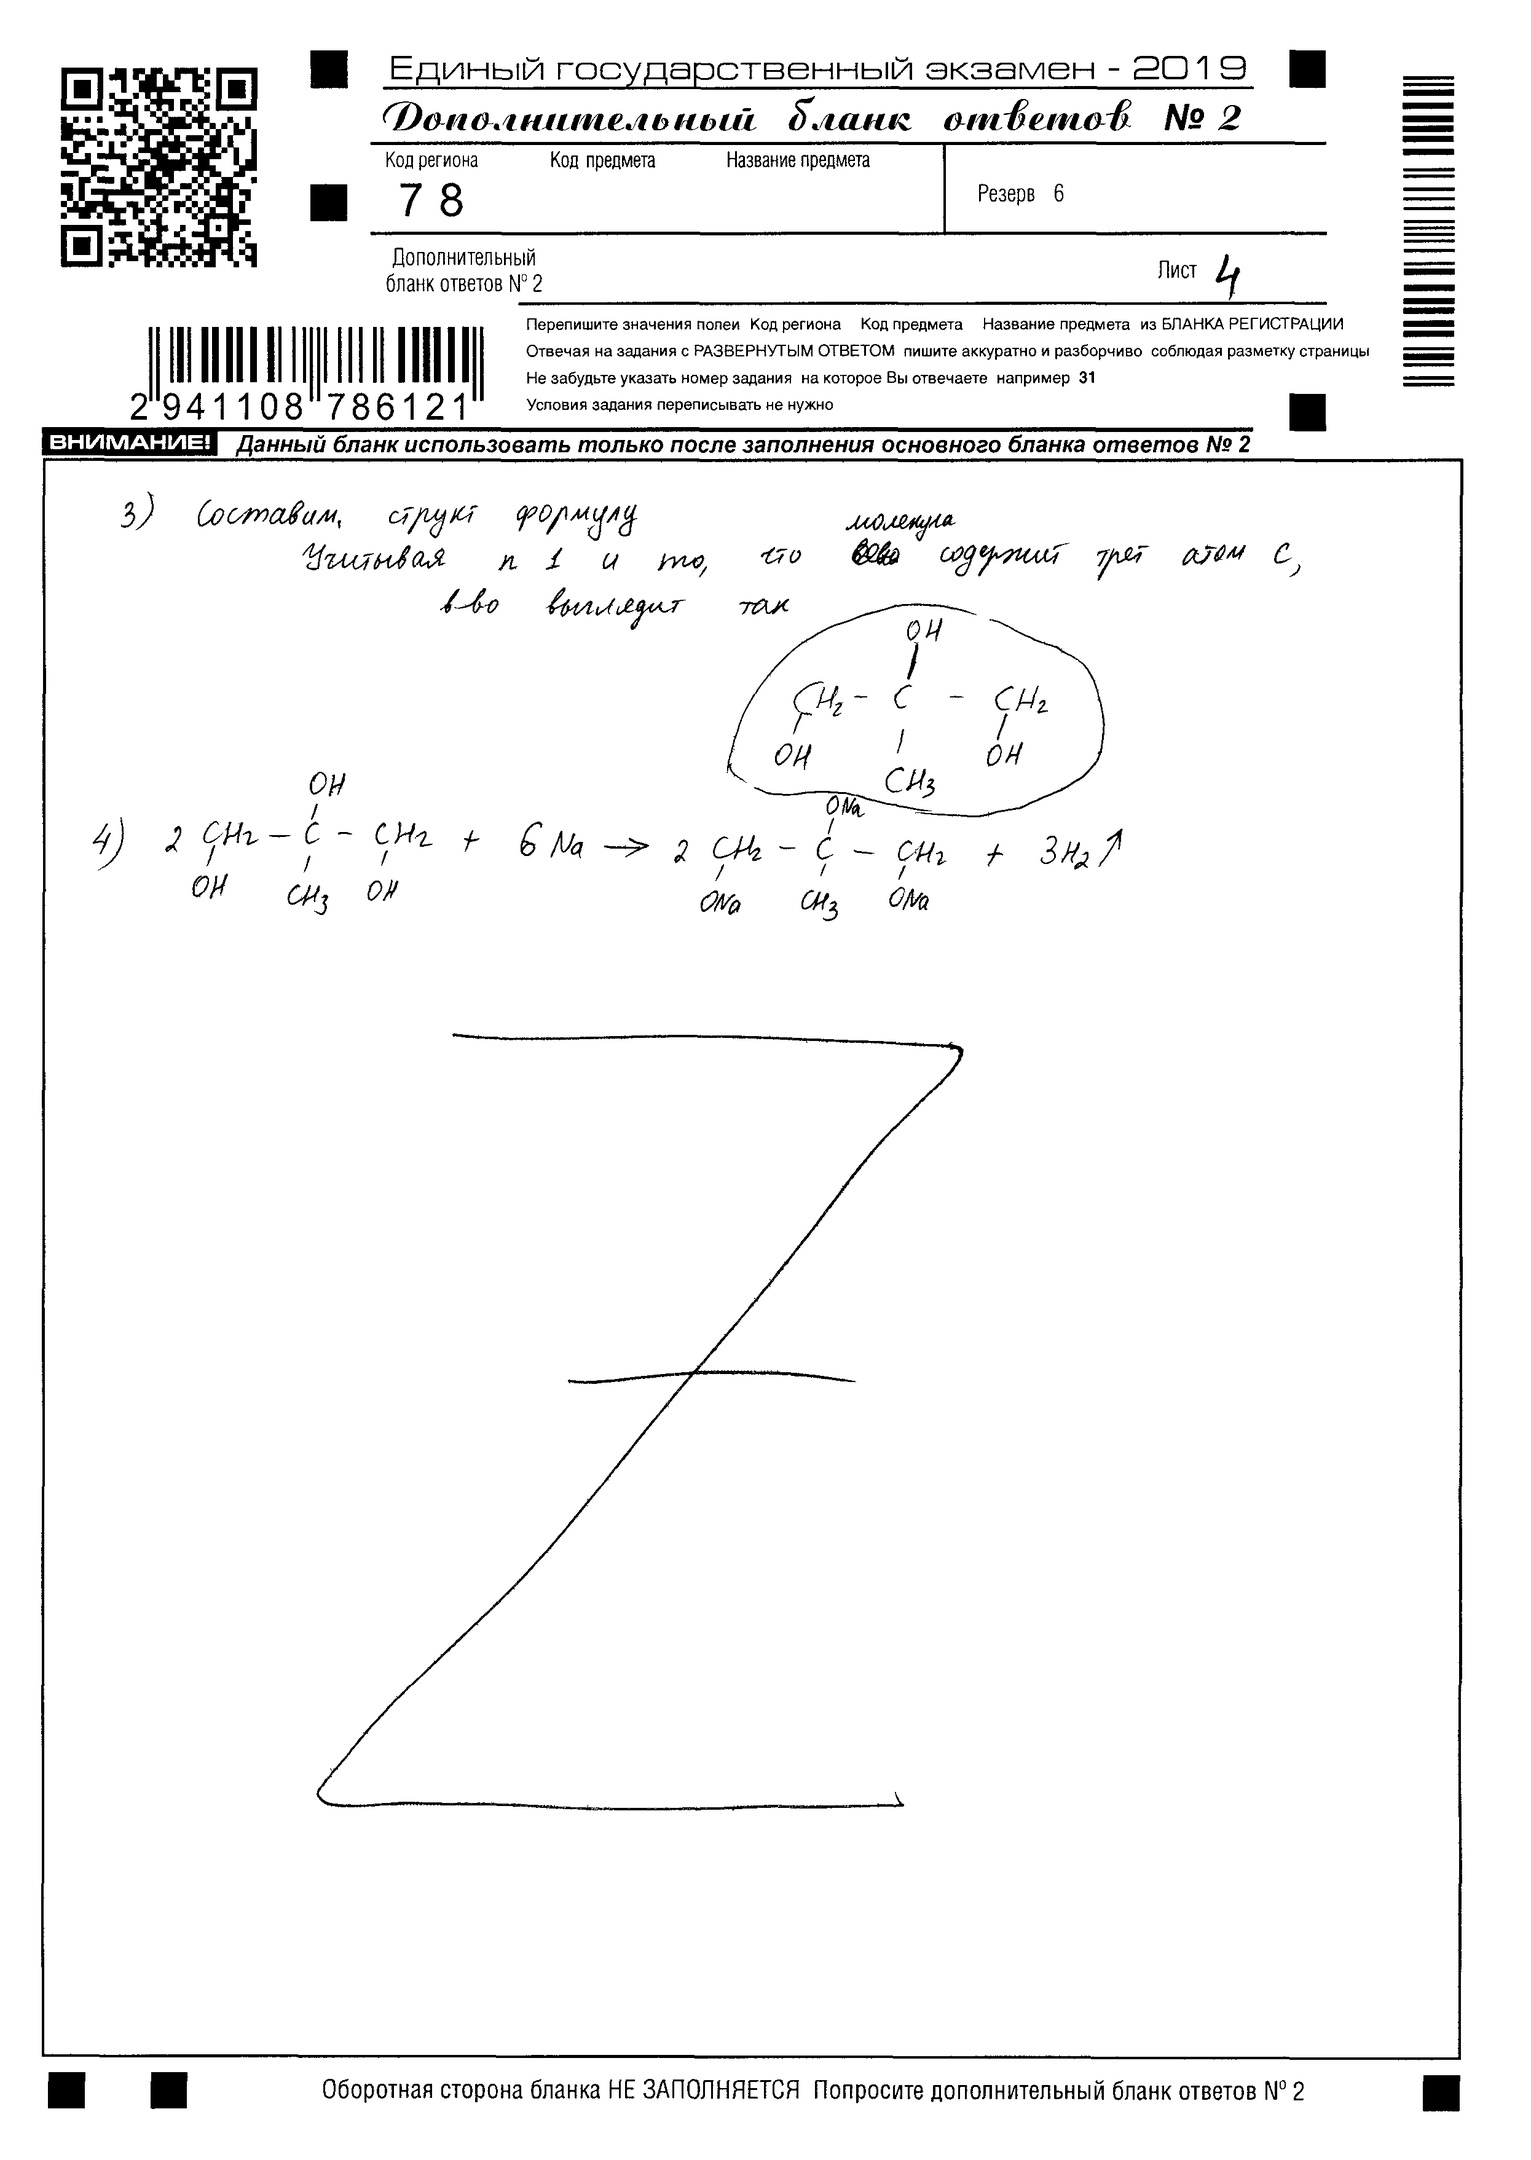 Единый государственный экзамен - 2019
Дополнительный бланк ответов № 2
Код региона Код предмета Название предмета
78
Резерв 6
Дополнительный
бланк ответов № 2
Лист 4
Перепишите значения полеи Код региона Код предмета Название предмета из БЛАНКА РЕГИСТРАЦИИ
Отвечая на задания с РАЗВЕРНУТЫМ ОТВЕТОМ пишите аккуратно и разборчиво соблюдая разметку страницы
Не забудьте указать номер задания на которое Вы отвечаете например 31
Условия задания переписывать не нужно
2 941108 786121
ВНИМАНИЕ! Данный бланк использовать только после заполнения основного бланка ответов № 2
3) Составим, структ формулу
молекула
Учитывая п 1 и то, что содержит трет атом С,
в-во выглядит так
OH
CH2 - C - CH2
OH OH
CH3
OH ONa
4) 2 CH2 - C - CH2 + 6 Na → 2 CH2 - C - CH2 + 3H2↑
OH CH3 OH ONa CH3 ONa
Оборотная сторона бланка НЕ ЗАПОЛНЯЕТСЯ Попросите дополнительный бланк ответов № 2